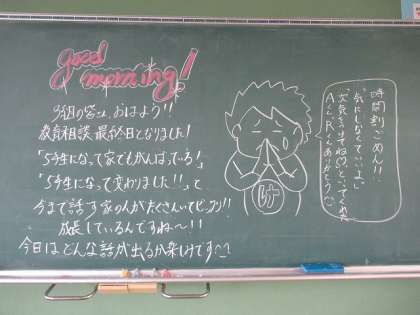 good
morning!
3組の皆さん、おはよう!!
教育相談最終日となりました!
「5年生になって家でもがんばっている!」
「5年生になって変わりました!!」と
今まで話す家の人がたくさんいてビックリ!!
成長しているんですね〜!!
今日はどんな話が出るか楽しみです
時間割ごめん!!
"気にしなくていいよ"
"次気をつけてね"といってくれた
Aくん Rくんありがとう
け